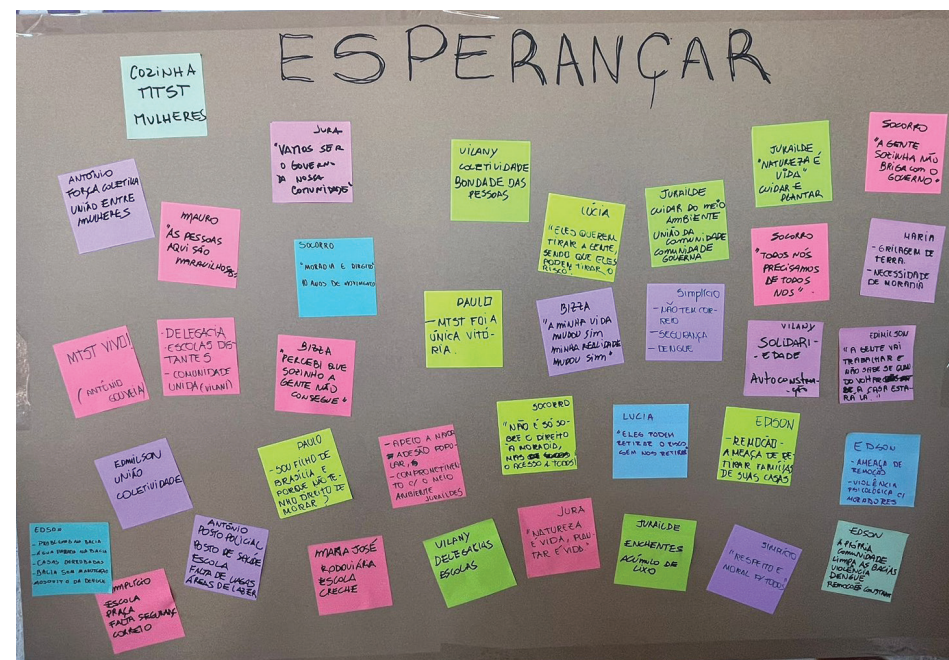 ESPERANÇAR
COZINHA
MTST
MULHERES
JURA
"VAMOS SER
O GOVERNO
DA NOSSA
COMUNIDADE"
VILANY
COLETIVIDADE
BONDADE DAS
PESSOAS
JURAILDE
"NATUREZA É
VIDA"
CUIDAR E
PLANTAR
SOCORRO
"A GENTE
SOZINHA NÃO
BRIGA COM O
GOVERNO"
ANTÔNIO
FORÇA COLETIVA
UNIÃO ENTRE
MULHERES
MAURO
"AS PESSOAS
AQUI SÃO
MARAVILHOSAS
SOCORRO
"MORADIA É DIREITO"
10 ANOS DE MOVIMENTO
LÚCIA
"ELES QUEREM
TIRAR A GENTE,
SENDO QUE ELES
PODEM TIRAR O
RISCO"
JURAILDE
CUIDAR DO MEIO
AMBIENTE
UNIÃO DA
COMUNIDADE
COMUNIDADE
GOVERNA
SOCORRO
"TODOS NÓS
PRECISAMOS
DE TODOS
NÓS"
MARIA
- GRILAGEM DE
TERRA.
- NECESSIDADE
DE MORADIA
MTST VIVO!
(ANTÔNIO
GOUVEIA)
- DELEGACIA
ESCOLAS DIS-
TANTES
- COMUNIDADE
UNIDA (VILANI)
BIZZA
"PERCEBI QUE
SOZINHO A
GENTE NÃO
CONSEGUE"
PAULO
- MTST FOI A
ÚNICA VITÓ-
RIA.
BIZZA
"A MINHA VIDA
MUDOU SIM
MINHA REALIDADE
MUDOU SIM"
Simplício
- NÃO TEM COR-
REIO
- SEGURANÇA
- DENGUE
VILANY
SOLIDARI-
EDADE
Autoconstru-
ção
EDIMILSON
"A GENTE VAI
TRABALHAR E
NÃO SABE SE QUAN
DO VOLTAR
A CASA ESTA-
RÁ LÁ."
EDMILSON
UNIÃO
COLETIVIDADE
PAULO
- SOU FILHO DE
BRASÍLIA, E
PORQUE NÃO TE-
NHO DIREITO DE
MORAR?
- APOIO A
ADESÃO POPU-
LAR,
- COMPROMETIMEN-
TO C/ O MEIO
AMBIENTE
JURAILDES
SOCORRO
"NÃO É SÓ SO-
BRE O DIREITO
A MORADIA,
MAS
O ACESSO A TODOS!
LUCIA
"ELES PODEM
RETIRAR O RISCO
SEM NOS RETIRAR
EDSON
- REMOÇÃO
AMEAÇA DE RE-
TIRAR FAMÍLIAS
DE SUAS CASAS
EDSON
- AMEAÇA DE
REMOÇÃO
- VIOLÊNCIA
PSICOLÓGICA C/
MORADORES
EDSON
- PROBLEMA NA BACIA
- ÁGUA PARADA NA BACIA
- CASAS DERRUBADAS
- BACIA SEM MANUTENÇÃO
MOSQUITO DA DENGUE
SIMPLÍCIO
ESCOLA
PRAÇA
FALTA SEGURANÇA
CORREIO
ANTÔNIO
POSTO POLICIAL
POSTO DE SAÚDE
ESCOLA
FALTA DE VAGAS
ÁREAS DE LAZER
MARIA JOSÉ
RODOVIÁRIA
ESCOLA
CRECHE
VILANY
DELEGACIAS
ESCOLAS
JURA
"NATUREZA
É VIDA, PLAN-
TAR É VIDA"
JURAILDE
ENCHENTES
ACÚMULO DE
LIXO
"RESPEITO E
MORAL P/ TODOS"
EDSON
A PRÓPRIA
COMUNIDADE
LIMPA AS BACIAS
VIOLÊNCIA
DENGUE
REMOÇÕES CONSTANTES